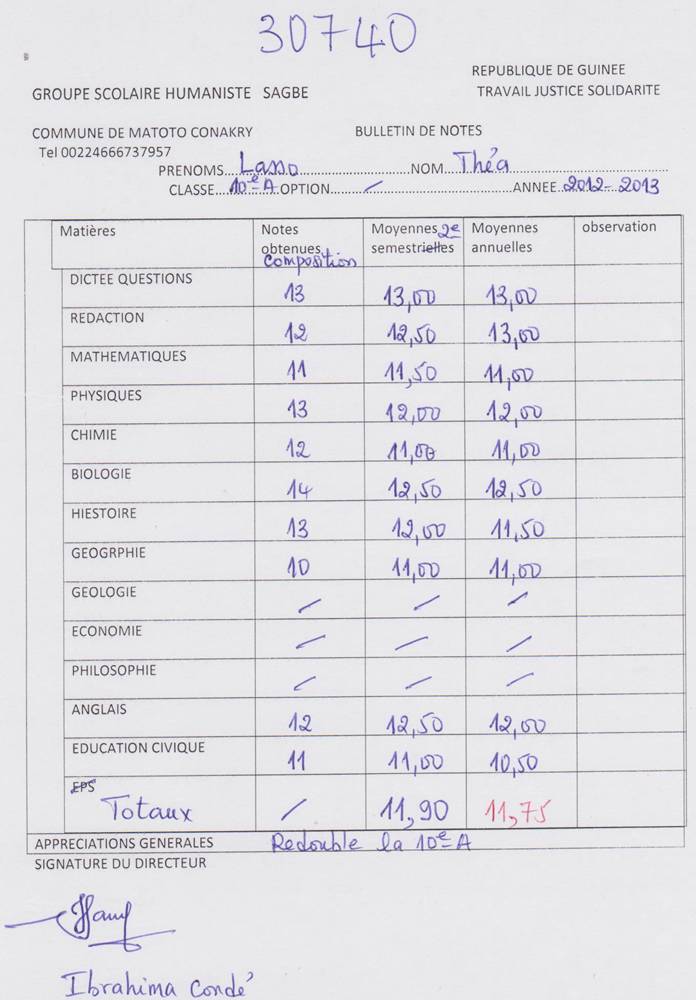 30740
REPUBLIQUE DE GUINEE
GROUPE SCOLAIRE HUMANISTE SAGBE TRAVAIL JUSTICE SOLIDARITE
COMMUNE DE MATOTO CONAKRY BULLETIN DE NOTES
Tel 00224666737957
PRENOMS Lasso NOM Théa
CLASSE 10e A OPTION / ANNEE 2012-2013
Matières Notes obtenues composition Moyennes 2e semestrielles Moyennes annuelles observation
DICTEE QUESTIONS 13 13,00 13,00
REDACTION 12 12,50 13,00
MATHEMATIQUES 11 11,50 11,00
PHYSIQUES 13 12,00 12,00
CHIMIE 12 11,00 11,00
BIOLOGIE 14 12,50 12,50
HIESTOIRE 13 12,00 11,50
GEOGRPHIE 10 11,00 11,00
GEOLOGIE / / /
ECONOMIE / / /
PHILOSOPHIE / / /
ANGLAIS 12 12,50 12,00
EDUCATION CIVIQUE 11 11,00 10,50
EPS
Totaux / 11,90 11,75
APPRECIATIONS GENERALES Redouble la 10e A
SIGNATURE DU DIRECTEUR
Ibrahima Condé